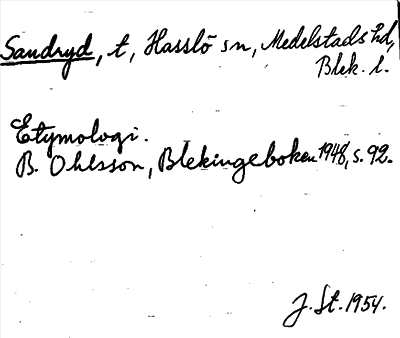 Sandryd, t, Hasslö sn, Medelstads hd,
Blek. l.
Etymologi.
B. Ohlsson, Blekingeboken 1948, s. 92.
J. St. 1954.